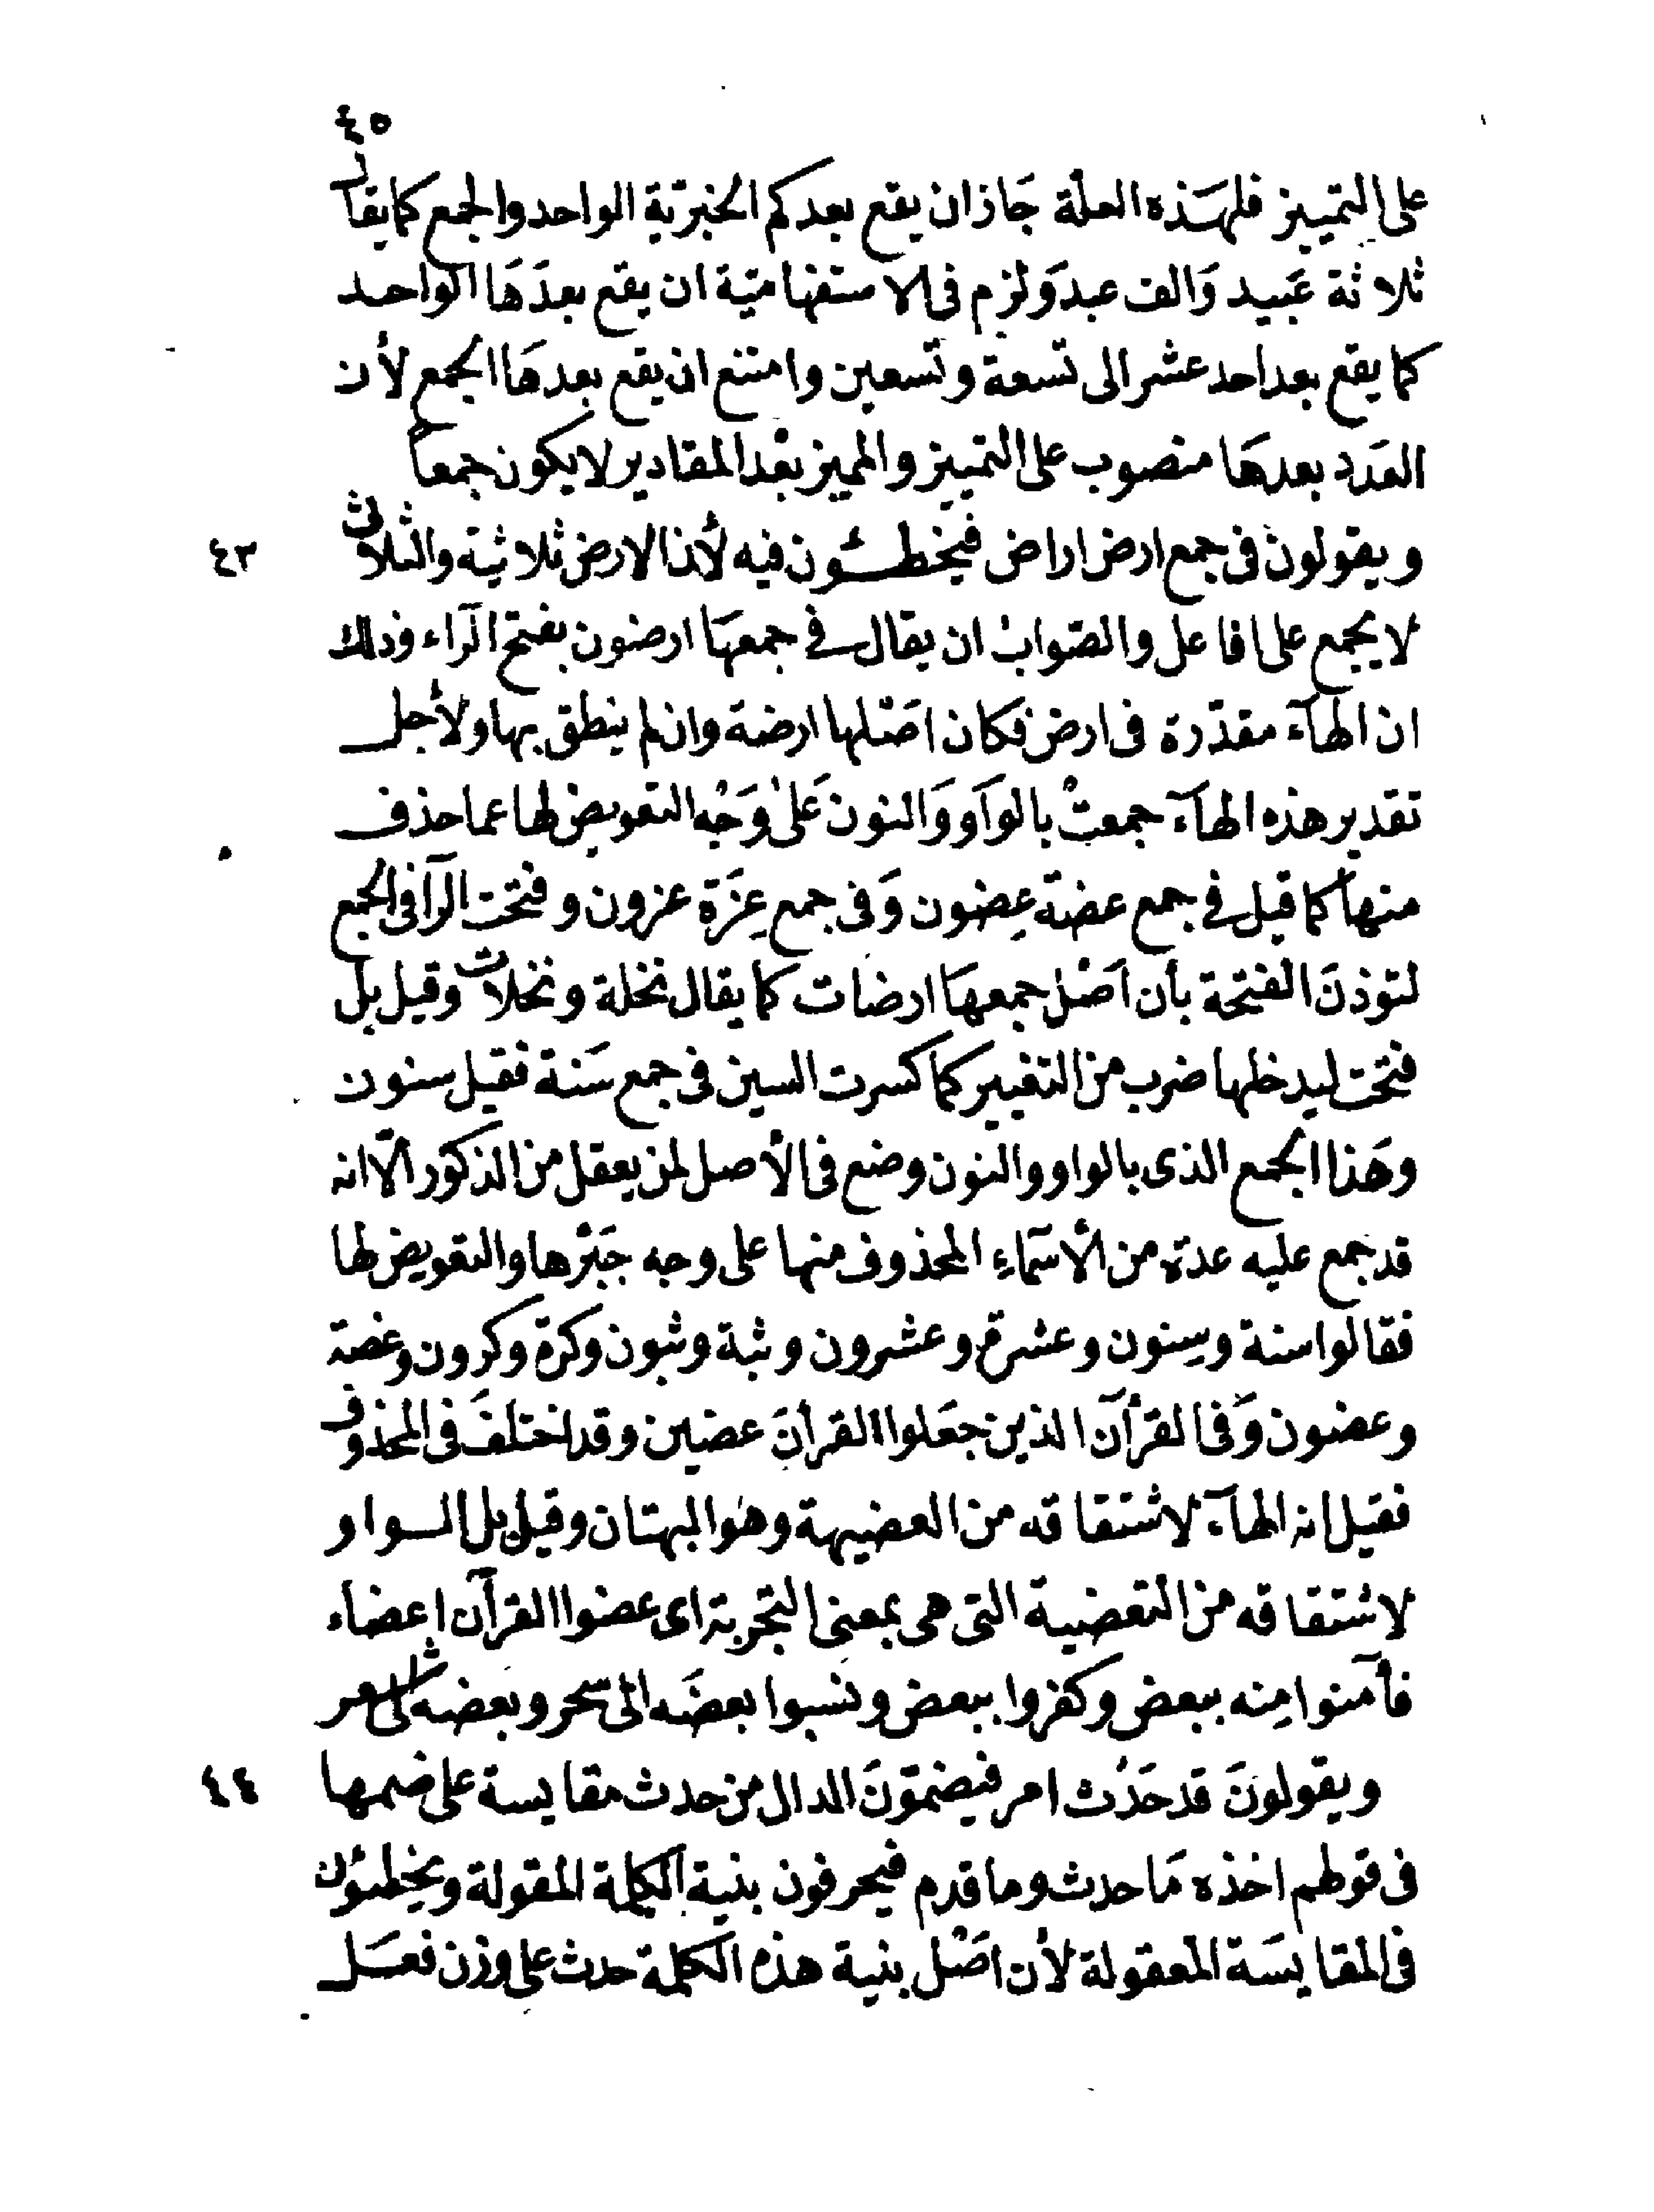 ٤٥
على التمييز فلهَذه العلّة جَاز ان يقع بعدكم الخبريّة الواحد والجمع كما يقال
ثلاثة عَبيد وَالف عبد وَلزم فى الاستفهاميّة ان يقع بعدَهَا الواحد
كما يقع بعد احد عشر الى تسعة وتسعين وامتنع ان يقع بعدهَا الجمع لأن
العَدد بعدهَا منصوب على التمييز والمميز بعْد المقادير لا يكون جمعاً
ويقولون فى جمع ارض اراض فيخطئون فيه لأن الارض ثلاثية والثلاثى
٤٣
لا يجمع على افاعل والصّوابُ ان يقال فى جمعهَا ارضون بفتح الرّاء وذلك
ان الهآء مقدّرة فى ارض فكان اصْلها ارضة وان لم ينطق بها ولأجل
تقدير هذه الهآء جمعتْ بالوَاو وَالنون عَلىٰ وَجْه التعويض لها عما حذف
منها كما قيل فى جمع عضة عِضون وَفى جمع عِزَة عزون وفتحت الرّآ فى الجمع
لتوذنَ الفتحة بأن اَصْل جمعهَا ارضات كما يقال نخلة ونخلات وقيل بل
فتحت ليدخلها ضرب من التغيير كما كسرت السين فى جمع سَنة فقيل سنون
وهَذا الجمع الذى بالواو والنون وضع فى الأصل لمن يعقل من الذكور الّا انه
قد جمع عليه عدّة من الأسَماءِ المحذوف منها على وجه جَبْرها والتعويض لها
فقالوا سنة وسِنون وعشرة وعشرون وثبة وثبون وكرة وكرون وعضة
وعضون وَفى القرآن الذين جعَلوا القرآنَ عضين وقد اختلفَ فى المحذوف
فقيل انه الهآء لاشتقاقه من العضيهة وهوَ البهتان وقيل بل الواو
لاشتقاقه من التعضية التى هى بمعنى التجربة اى عضوا القرآن اعضاء
فآمنوا مِنه ببعض وكفروا ببعض ونسبوا بعضَه الى سحر وبعضه الى شعر
ويقولونَ قد حَدُث امر فيضمّونَ الدال من حدث مقايسة على ضمها
٤٤
فى قولهم اخذه مَا حدث وما قدم فيحرفون بنية الكلمة المقولة ويخطئون
فى المقايسَة المعقولة لأن اصْل بنية هذه الكلمة حدث على وزن فعَل